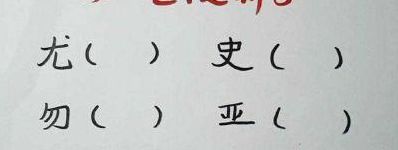 尤（ ） 史（ ）
勿（ ） 亚（ ）